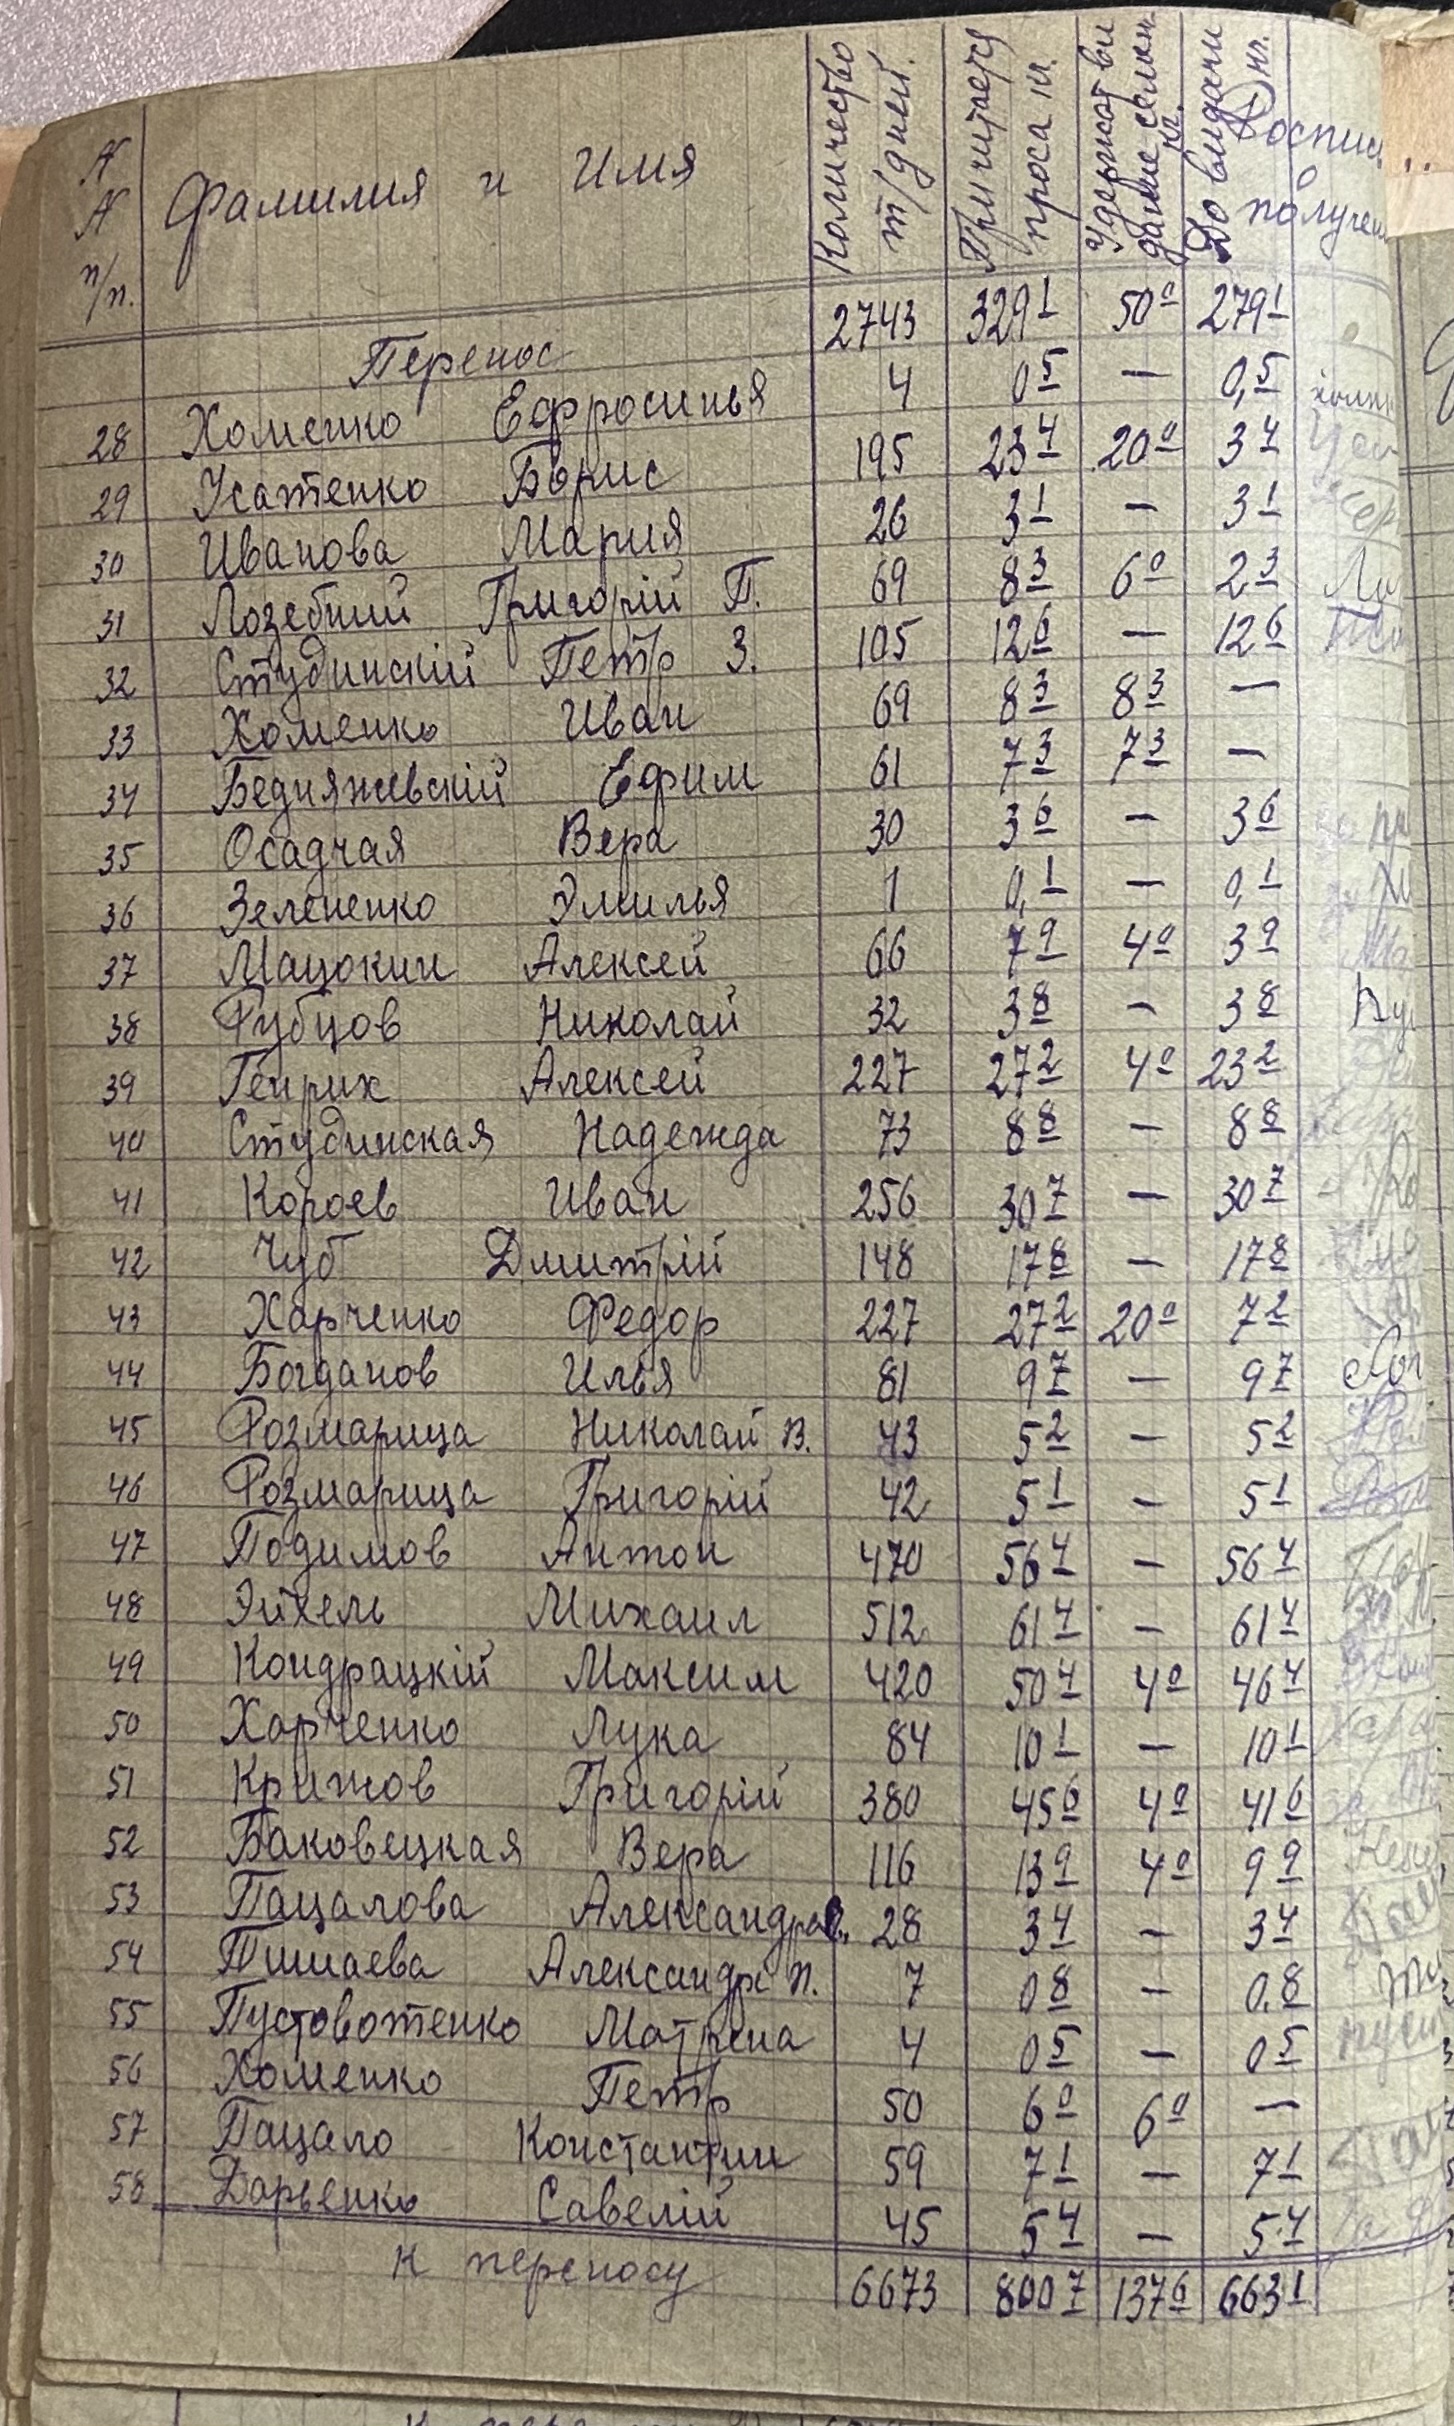 N N п/п. Фамилия и Имя Количество т/дней. Причитаету проса кг. Удержат ви дание семян кг. До видачи кг. Роспись о получении
Перенос 2743 329 1 50 0 279 1
28 Хоменко Ефросинья 4 0 5 — 0,5
29 Усатенко Борис 195 23 4 20 0 3 4
30 Иванова Мария 26 3 1 — 3 1
31 Лозебний Григорій П. 69 8 3 6 0 2 3
32 Студинскій Петр З. 105 12 6 — 12 6
33 Хоменко Иван 69 8 3 8 3 —
34 Бедняжевскій Ефим 61 7 3 7 3 —
35 Осадчая Вера 30 3 6 — 3 6
36 Зелененко Эмилья 1 0,1 — 0,1
37 Мацокин Алексей 66 7 9 4 0 3 9
38 Рубцов Николай 32 3 8 — 3 8
39 Генрих Алексей 227 27 2 4 0 23 2
40 Студинская Надежда 73 8 8 — 8 8
41 Короев Иван 256 30 7 — 30 7
42 Чуб Дмитрій 148 17 8 — 17 8
43 Харченко Федор 227 27 2 20 0 7 2
44 Богданов Илья 81 9 7 — 9 7
45 Розмарица Николай В. 43 5 2 — 5 2
46 Розмарица Григорій 42 5 1 — 5 1
47 Подимов Антон 470 56 4 — 56 4
48 Эйхель Михаил 512 61 4 — 61 4
49 Кондрацкій Максим 420 50 4 4 0 46 4
50 Харченко Лука 84 10 1 — 10 1
51 Крижов Григорій 380 45 6 4 0 41 6
52 Баковецкая Вера 116 13 9 4 0 9 9
53 Пацалова Александра 28 3 4 — 3 4
54 Тишаева Александр П. 7 0 8 — 0.8
55 Пустовотенко Матрена 4 0 5 — 0 5
56 Хоменко Петр 50 6 0 6 0 —
57 Пацало Константин 59 7 1 — 7 1
58 Дарьенко Савелій 45 5 4 — 5.4
К переносу 6673 800 7 137 6 663 1